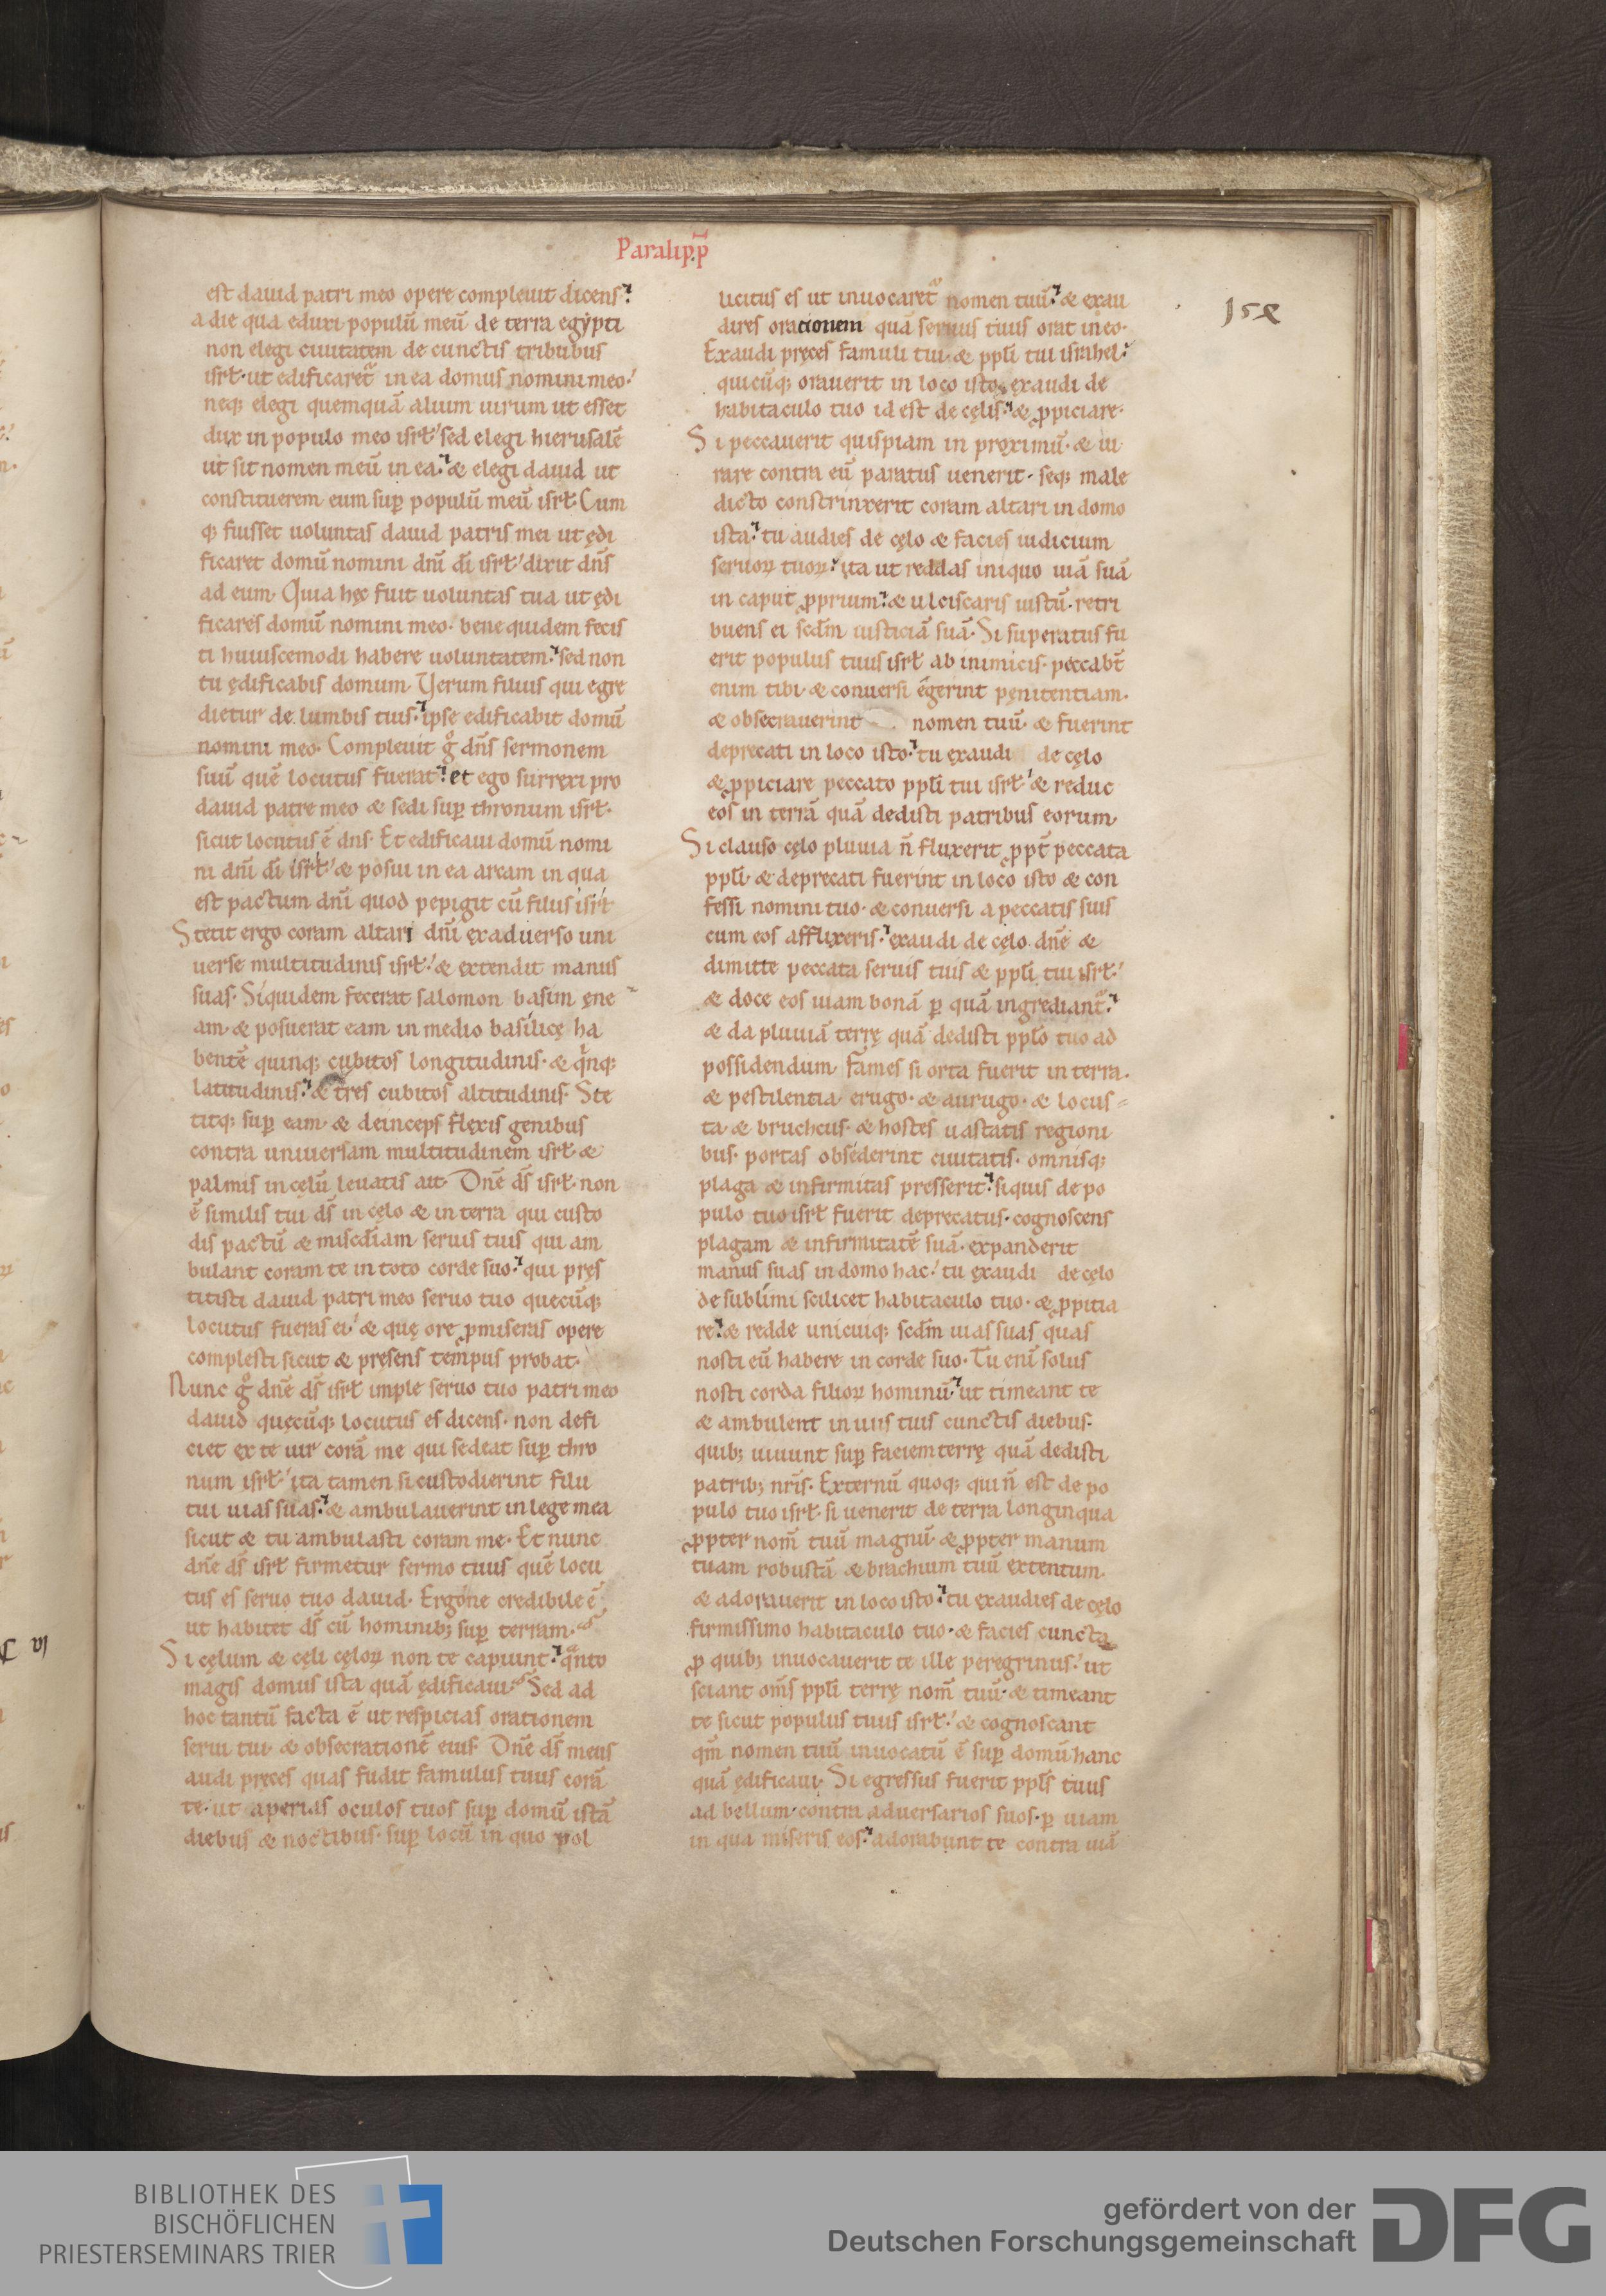 Paralipp̄
154
est dauid patri meo opere compleuit dicens.
a die qua eduxi populū meū de terra egẏpti
non elegi ciuitatem de cunctis tribubus
isrł· ut edificaret᷑ in ea domus nomini meo·
neq; elegi quemquā alium uirum ut esset
dux in populo meo isrł· sed elegi hierusalē
ut sit nomen meū in ea· & elegi dauid ut
constituerem eum sup̄ populū meū isrł. Cum
q; fuisset uoluntas dauid patris mei ut ędi
ficaret domū nomini dn̄i dī isrł· dixit dn̄s
ad eum. Quia hęc fuit uoluntas tua ut ędi
ficares domū nomini meo· bene quidem fecis
ti huiuscemodi habere uoluntatem· sed non
tu ędificabis domum. Uerum filius qui egre
dietur de lumbis tuis· ipse edificabit domū
nomini meo. Compleuit gͦ dn̄s sermonem
suū quē locutus fuerat· et ego surrexi pro
dauid patre meo & sedi sup̄ thronum isrł·
sicut locutus ē dns. Et edificaui domū nomi
ni dn̄i dī isrł· & posui in ea arcam in qua
est pactum dn̄i quod pepigit cū filiis isrł
Stetit ergo coram altari dn̄i exaduerso uni
uerse multitudinis isrł· & extendit manus
suas. Siquidem fecerat salomon basim ęne
am· & posuerat eam in medio basilicę ha
bentē quinq; cubitos longitudinis· & qͥnq;
latitudinis· & tres cubitos altitudinis. Ste
titq; sup̄ eam· & deinceps flexis genibus
contra uniuersam multitudinem isrł· &
palmis in cęlū leuatis ait. Dn̄e ds̄ isrł· non
ē similis tui ds̄ in cęlo & in terra qui custo
dis pactū & misc̄diam seruis tuis qui am
bulant coram te in toto corde suo· qui pręs
titisti dauid patri meo seruo tuo quecūq;
locutus fueras ei· & quę ore ꝓmiseras opere
complesti sicut & presens tempus probat.
Nunc gͦ dn̄e ds̄ isrł imple seruo tuo patri meo
dauid quęcūq; locutus es dicens· non defi
ciet ex te uir corā me qui sedeat sup̄ thro
num isrł· ita tamen si custodierint filii
tui uias suas· & ambulauerint in lege mea
sicut & tu ambulasti coram me. Et nunc
dn̄e ds̄ isrł firmetur sermo tuus quē locu
tus es seruo tuo dauid. Ergone credibile ē
ut habitet ds̄ cū hominib; sup̄ terram.
Si cęlum & cęli cęloꝝ non te capiunt· qͣnto
magis domus ista quā ędificaui. Sed ad
hoc tantū facta ē ut respicias orationem
serui tui· & obsecrationē eius. Dn̄e ds̄ meus
audi pręces quas fudit famulus tuus corā
te· ut aperias oculos tuos sup̄ domū istā
diebus & noctibus· sup̄ locū in quo pol
licitus es ut inuocaret᷑ nomen tuū· & exau
dires orationem quā seruus tuus orat in eo.
Exaudi pręces famuli tui· & ppl̄i tui israhel·
quicūq; orauerit in loco isto· exaudi de
habitaculo tuo id est de cęlis· & ꝓpiciare.
Si peccauerit quispiam in proximū· & iu
rare contra eū paratus uenerit· seq; male
dicto constrinxerit coram altari in domo
ista· tu audies de cęlo & facies iudicium
seruoꝝ tuoꝝ· ita ut reddas iniquo uiā suā
in caput ꝓprium· & ulciscaris iustū· retri
buens ei scd̄m iusticiā suā. Si superatus fu
erit populus tuus isrł ab inimicis· peccabt̄
enim tibi· & conuersi egerint pęnitentiam·
& obsecrauerint nomen tuū· & fuerint
deprecati in loco isto· tu exaudi de cęlo
& ꝓpiciare peccato ppl̄i tui isrł· & reduc
eos in terrā quā dedisti patribus eorum.
Si clauso cęlo pluuia n̄ fluxerit ꝓpt̄ peccata
ppl̄i· & deprecati fuerint in loco isto & con
fessi nomini tuo· & conuersi a peccatis suis
cum eos afflixeris· exaudi de cęlo dn̄e &
dimitte peccata seruis tuis & ppl̄i tui isrł·
& doce eos uiam bonā p̱ quā ingrediant᷑·
& da pluuiā terrę quā dedisti ppl̄o tuo ad
possidendum. Fames si orta fuerit in terra·
& pestilentia· erugo· & aurugo· & locus
ta· & bruchus· & hostes uastatis regioni
bus· portas obsederint ciuitatis· omnisq;
plaga & infirmitas presserit· siquis de po
pulo tuo isrł fuerit deprecatus· cognoscens
plagam & infirmitatē suā· expanderit
manus suas in domo hac· tu exaudi de cęlo
de sublimi scilicet habitaculo tuo· & ꝓpitia
re· & redde unicuiq; scd̄m uias suas quas
nosti eū habere in corde suo. Tu enī solus
nosti corda filioꝝ hominū· ut timeant te
& ambulent in uiis tuis cunctis diebus·
quib; uiuunt sup̄ faciem terrę quā dedisti
patrib; nr̄is. Externū quoq; qui n̄ est de po
pulo tuo isrł· si uenerit de terra longinqua
ꝓpter nom̄ tuū magnū· & ꝓpter manum
tuam robustā & brachium tuū extentum·
& adorauerit in loco isto· tu exaudies de cęlo
firmissimo habitaculo tuo· & facies cuncta
ꝓ quib; inuocauerit te ille peregrinus· ut
sciant om̄s ppl̄i terrę nom̄ tuū· & timeant
te sicut populus tuus isrł· & cognoscant
qm̄ nomen tuū inuocatū ē sup̄ domū hanc
quā ędificaui. Si egressus fuerit ppl̄s tuus
ad bellum contra aduersarios suos· p̱ uiam
in qua miseris eos· adorabunt te contra uiā
BIBLIOTHEK DES
BISCHÖFLICHEN
PRIESTERSEMINARS TRIER
gefördert von der
Deutschen Forschungsgemeinschaft
DFG